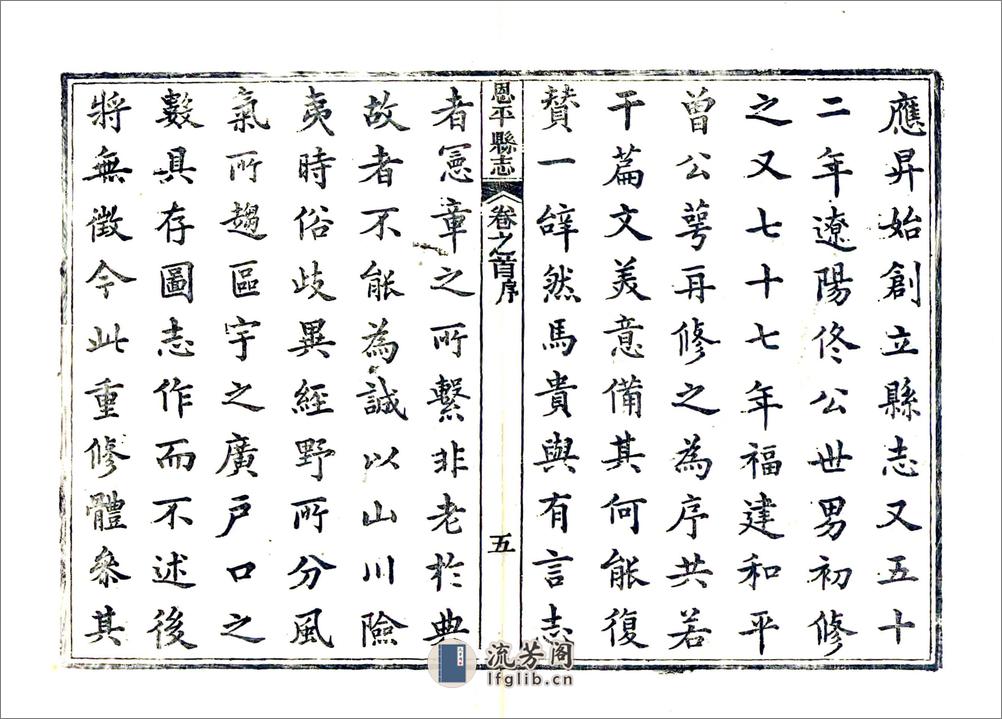 應昇始創立縣志又五十
二年遼陽佟公世男初修
之又七十七年福建和平
曾公萼再修之為序共若
干篇文美意備其何能復
贊一辭然馬貴與有言志
恩平縣志 卷之首序 五
者憲章之所繫非老於典
故者不能為誠以山川險
夷時俗歧異經野所分風
氣所趨區宇之廣戶口之
數具存圖志作而不述後
將無徵今此重修體叅其
流芳阁
lfglib.cn